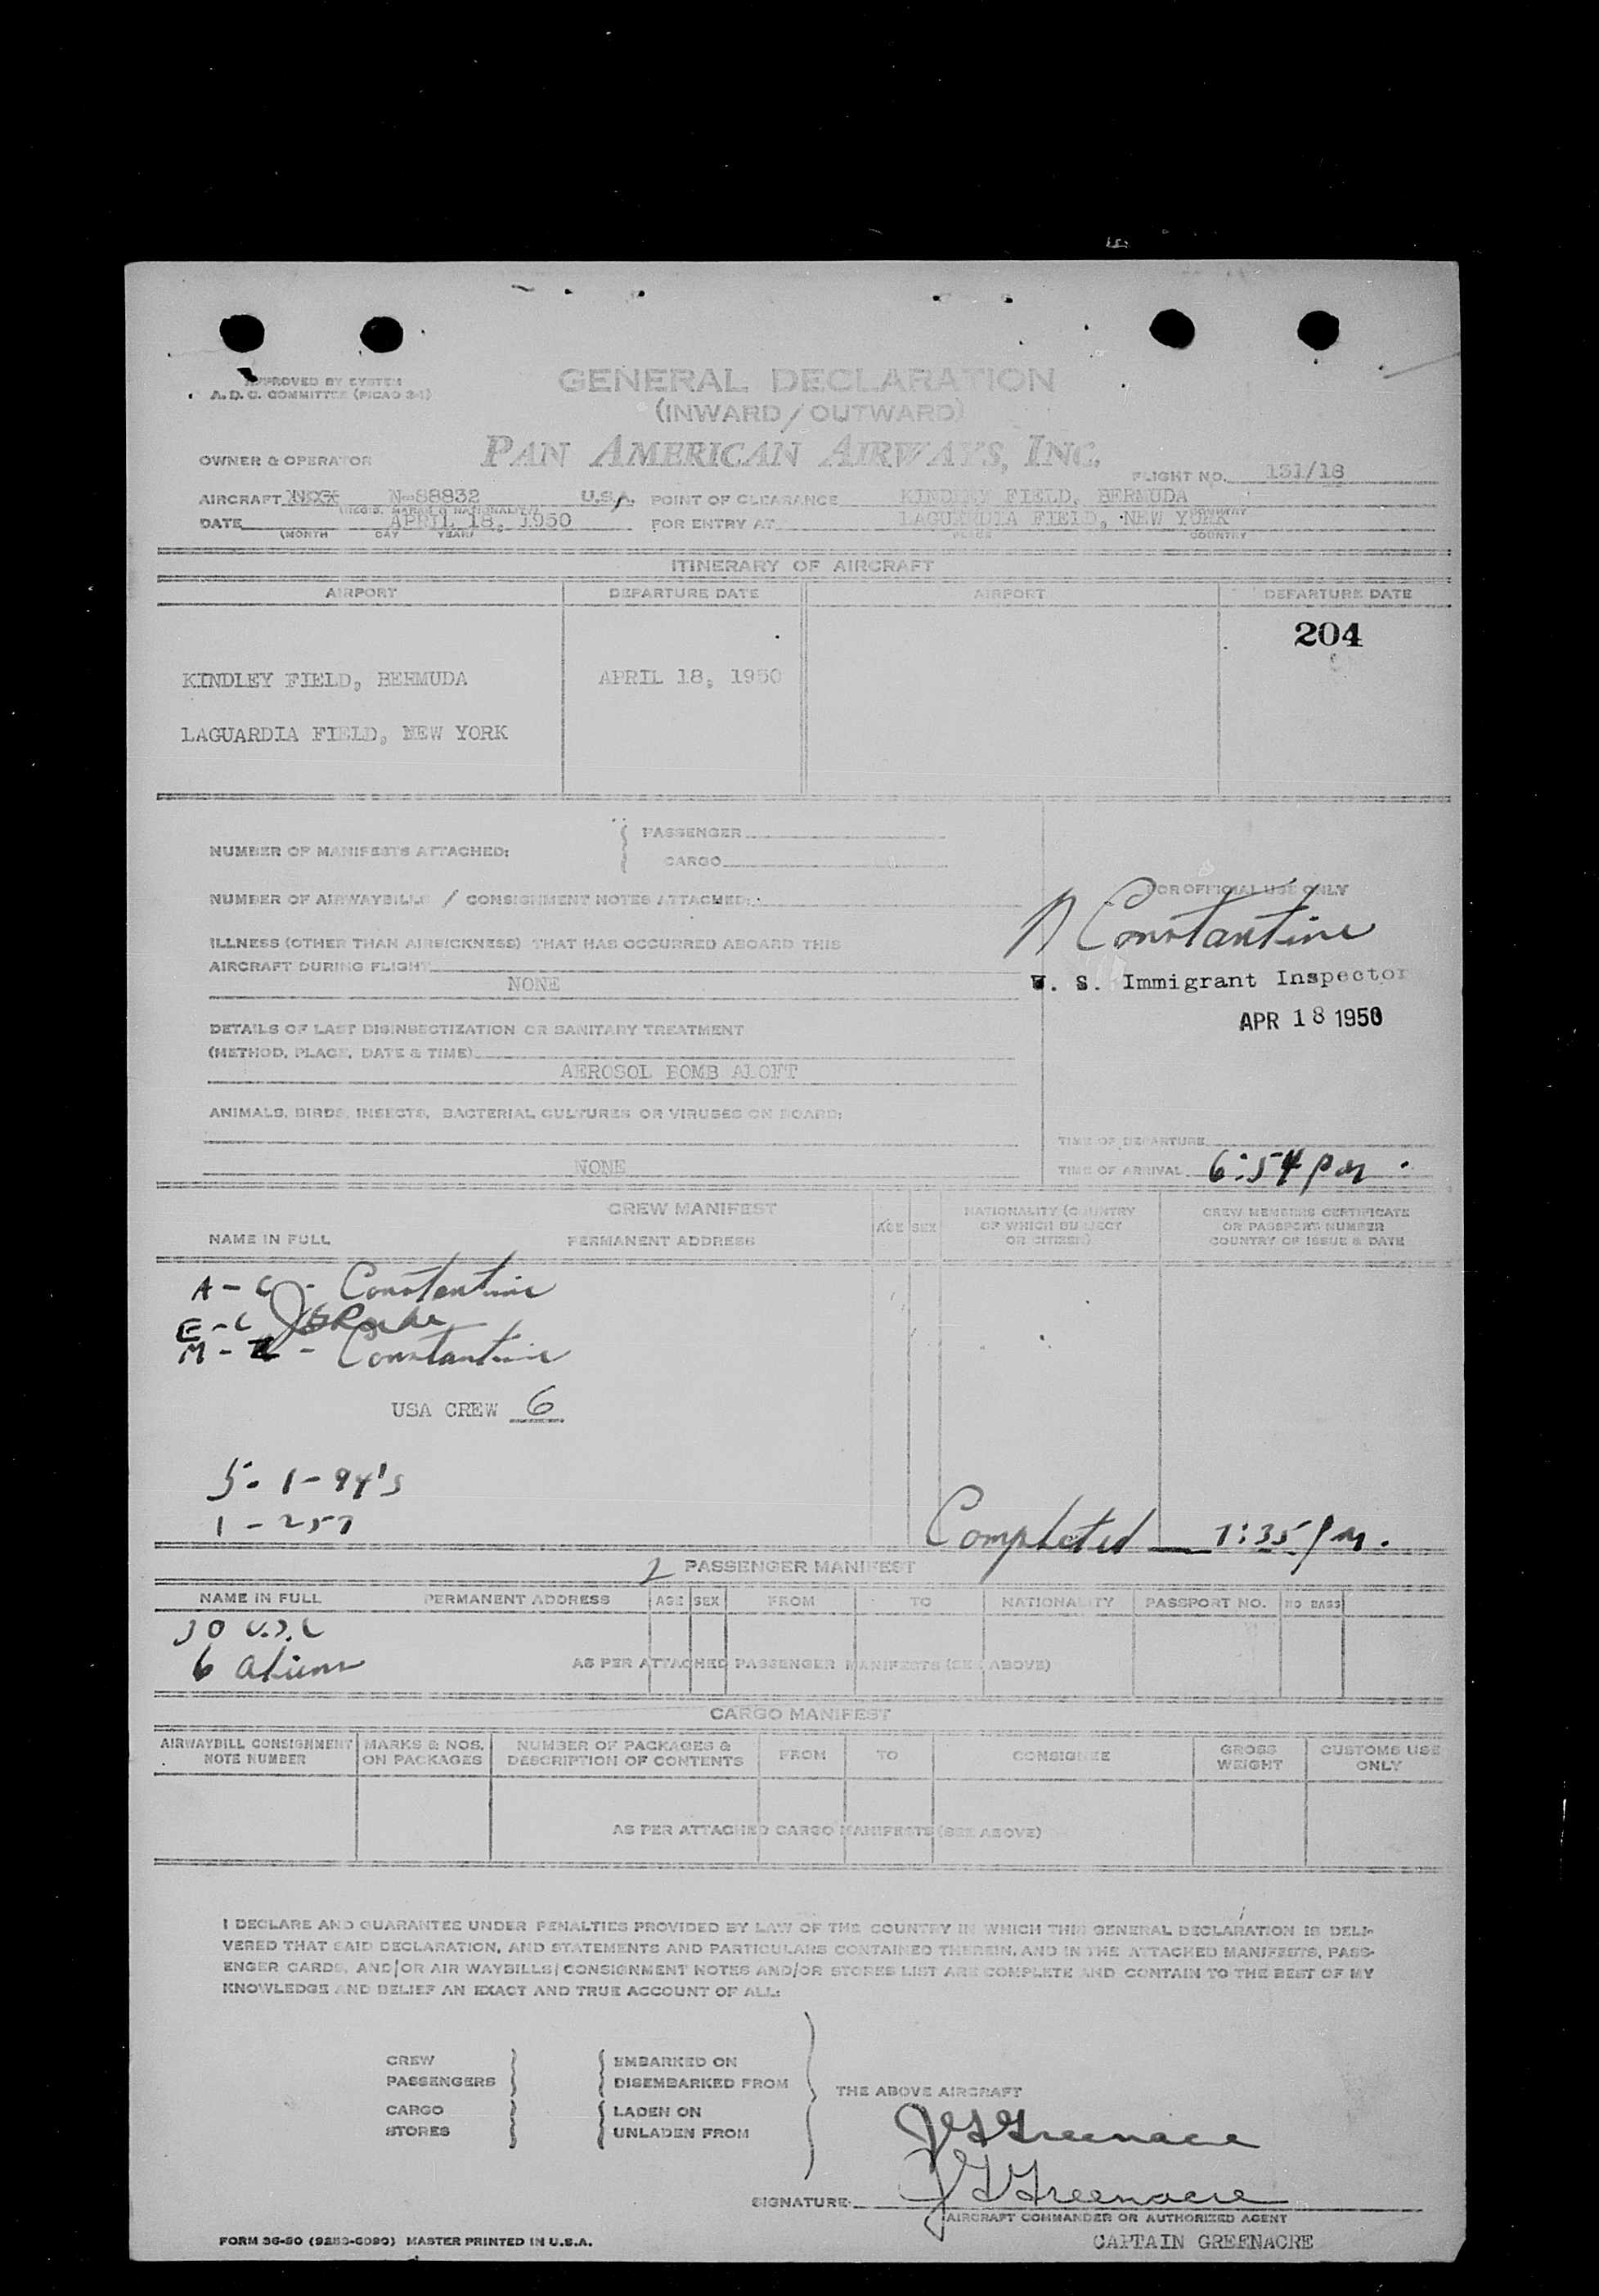 APPROVED BY SYSTEM
A. D. C. COMMITTEE (PICAO 2-1)
GENERAL DECLARATION
(INWARD/OUTWARD)
OWNER & OPERATOR
PAN AMERICAN AIRWAYS, INC.
FLIGHT NO. 131/18
AIRCRAFT N-88832 U.S.A. POINT OF CLEARANCE KINDLEY FIELD, BERMUDA
(REGIS. MARKS & NATIONALITY) COUNTRY
DATE APRIL 18, 1950 FOR ENTRY AT LAGUARDIA FIELD, NEW YORK
(MONTH DAY YEAR) PLACE COUNTRY
ITINERARY OF AIRCRAFT
AIRPORT DEPARTURE DATE AIRPORT DEPARTURE DATE
204
KINDLEY FIELD, BERMUDA APRIL 18, 1950
LAGUARDIA FIELD, NEW YORK
NUMBER OF MANIFESTS ATTACHED: PASSENGER
CARGO
NUMBER OF AIRWAYBILLS / CONSIGNMENT NOTES ATTACHED:
FOR OFFICIAL USE ONLY
Constantine
U. S. Immigrant Inspector
APR 18 1950
ILLNESS (OTHER THAN AIRSICKNESS) THAT HAS OCCURRED ABOARD THIS
AIRCRAFT DURING FLIGHT
NONE
DETAILS OF LAST DISINSECTIZATION OR SANITARY TREATMENT
(METHOD, PLACE, DATE & TIME)
AEROSOL BOMB ALOFT
ANIMALS, BIRDS, INSECTS, BACTERIAL CULTURES OR VIRUSES ON BOARD:
NONE
TIME OF DEPARTURE
TIME OF ARRIVAL 6:54 pm
CREW MANIFEST
NAME IN FULL PERMANENT ADDRESS AGE SEX NATIONALITY (COUNTRY OF WHICH SUBJECT OR CITIZEN) CREW MEMBERS CERTIFICATE OR PASSPORT NUMBER COUNTRY OF ISSUE & DATE
A - C - Constantine
E - L
M - Z - Constantine
USA CREW 6
5 - 1-94's
1 - 257
Completed 7:35 pm.
2 PASSENGER MANIFEST
NAME IN FULL PERMANENT ADDRESS AGE SEX FROM TO NATIONALITY PASSPORT NO. NO BAGS
30 U.S.C
6 Aliens
AS PER ATTACHED PASSENGER MANIFESTS (SEE ABOVE)
CARGO MANIFEST
AIRWAYBILL CONSIGNMENT NOTE NUMBER MARKS & NOS. ON PACKAGES NUMBER OF PACKAGES & DESCRIPTION OF CONTENTS FROM TO CONSIGNEE GROSS WEIGHT CUSTOMS USE ONLY
AS PER ATTACHED CARGO MANIFESTS (SEE ABOVE)
I DECLARE AND GUARANTEE UNDER PENALTIES PROVIDED BY LAW OF THE COUNTRY IN WHICH THIS GENERAL DECLARATION IS DELI-
VERED THAT SAID DECLARATION, AND STATEMENTS AND PARTICULARS CONTAINED THEREIN, AND IN THE ATTACHED MANIFESTS, PASS-
ENGER CARDS, AND/OR AIR WAYBILLS/CONSIGNMENT NOTES AND/OR STORES LIST ARE COMPLETE AND CONTAIN TO THE BEST OF MY
KNOWLEDGE AND BELIEF AN EXACT AND TRUE ACCOUNT OF ALL:
CREW EMBARKED ON
PASSENGERS DISEMBARKED FROM
THE ABOVE AIRCRAFT
CARGO LADEN ON
STORES UNLADEN FROM
J G Greenacre
SIGNATURE: J G Greenacre
AIRCRAFT COMMANDER OR AUTHORIZED AGENT
CAPTAIN GREENACRE
FORM 36-90 MASTER PRINTED IN U.S.A.